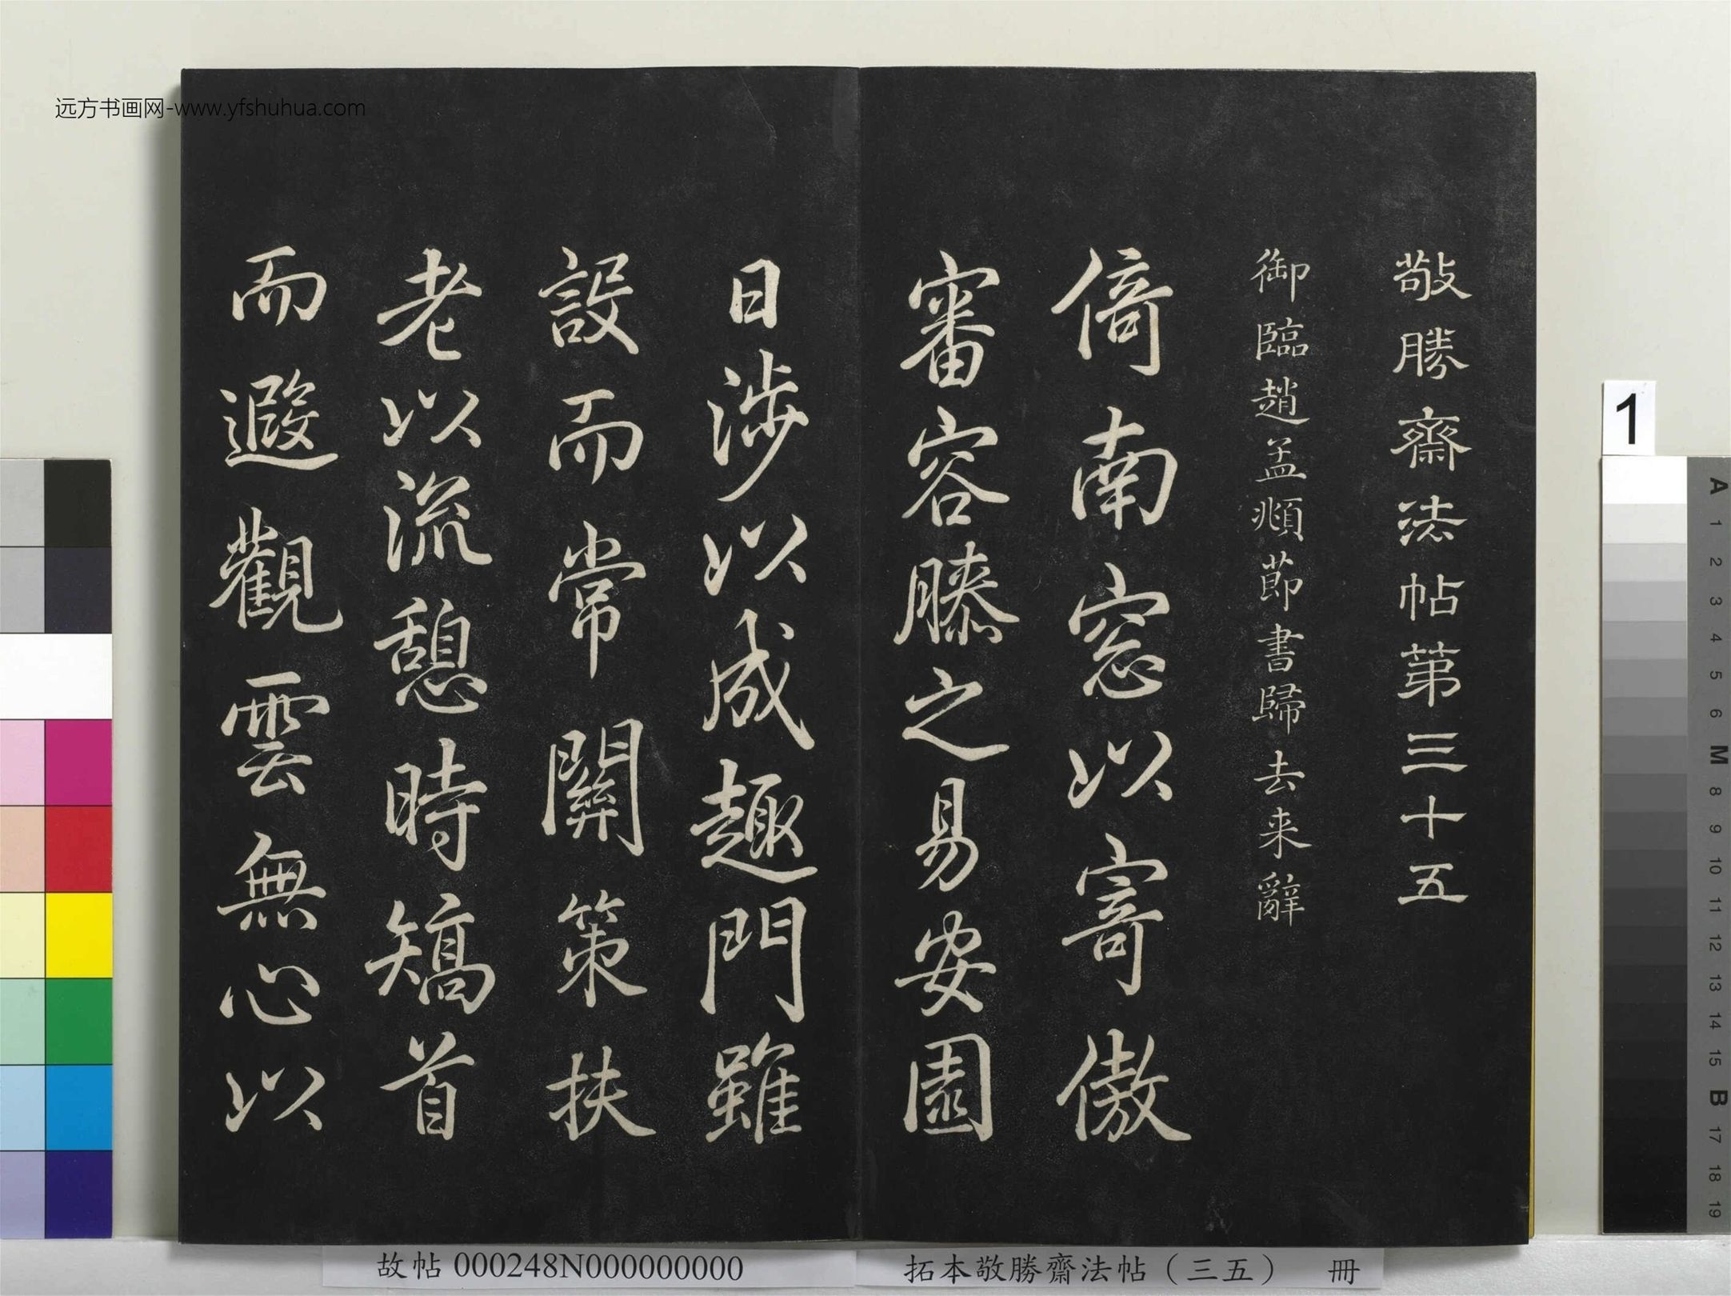 远方书画网-www.yfshuhua.com
敬勝齋法帖第三十五
御臨趙孟頫節書歸去来辭
倚南窓以寄傲
審容膝之易安園
日涉以成趣門雖
設而常關策扶
老以流憩時矯首
而遐觀雲無心以
故帖 000248N000000000
拓本敬勝齋法帖（三五） 冊
1
A
1
2
3
4
5
6
M
8
9
10
11
12
13
14
15
B
17
18
19